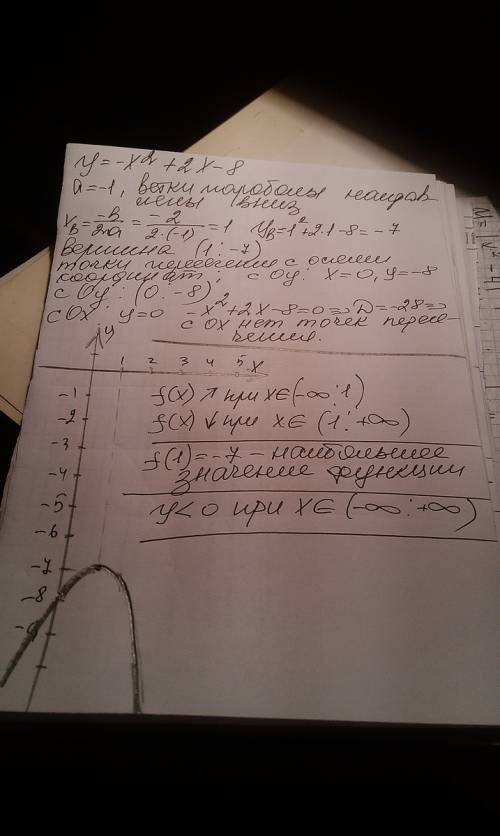 y=-x²+2x-8
a=-1, ветки параболы направ
лены вниз
x_B=-b/2a=-2/2·(-1)=1 y_B=1²+2·1-8=-7
вершина (1;-7)
точки пересечения с осями
координат: с Oy: x=0, y=-8
с Oy: (0;-8)
с Ox: y=0 -x²+2x-8=0⇒D=-28⇒
с Ox нет точек пересе-
чения.
y
1 2 3 4 5 x
-1 f(x)↗при x∈(-∞;1)
-2 f(x)↓при x∈(1;+∞)
-3 f(1)=-7-наибольшее
-4 значение функции
-5 y<0 при x∈(-∞;+∞)
-6
-7
-8
-9